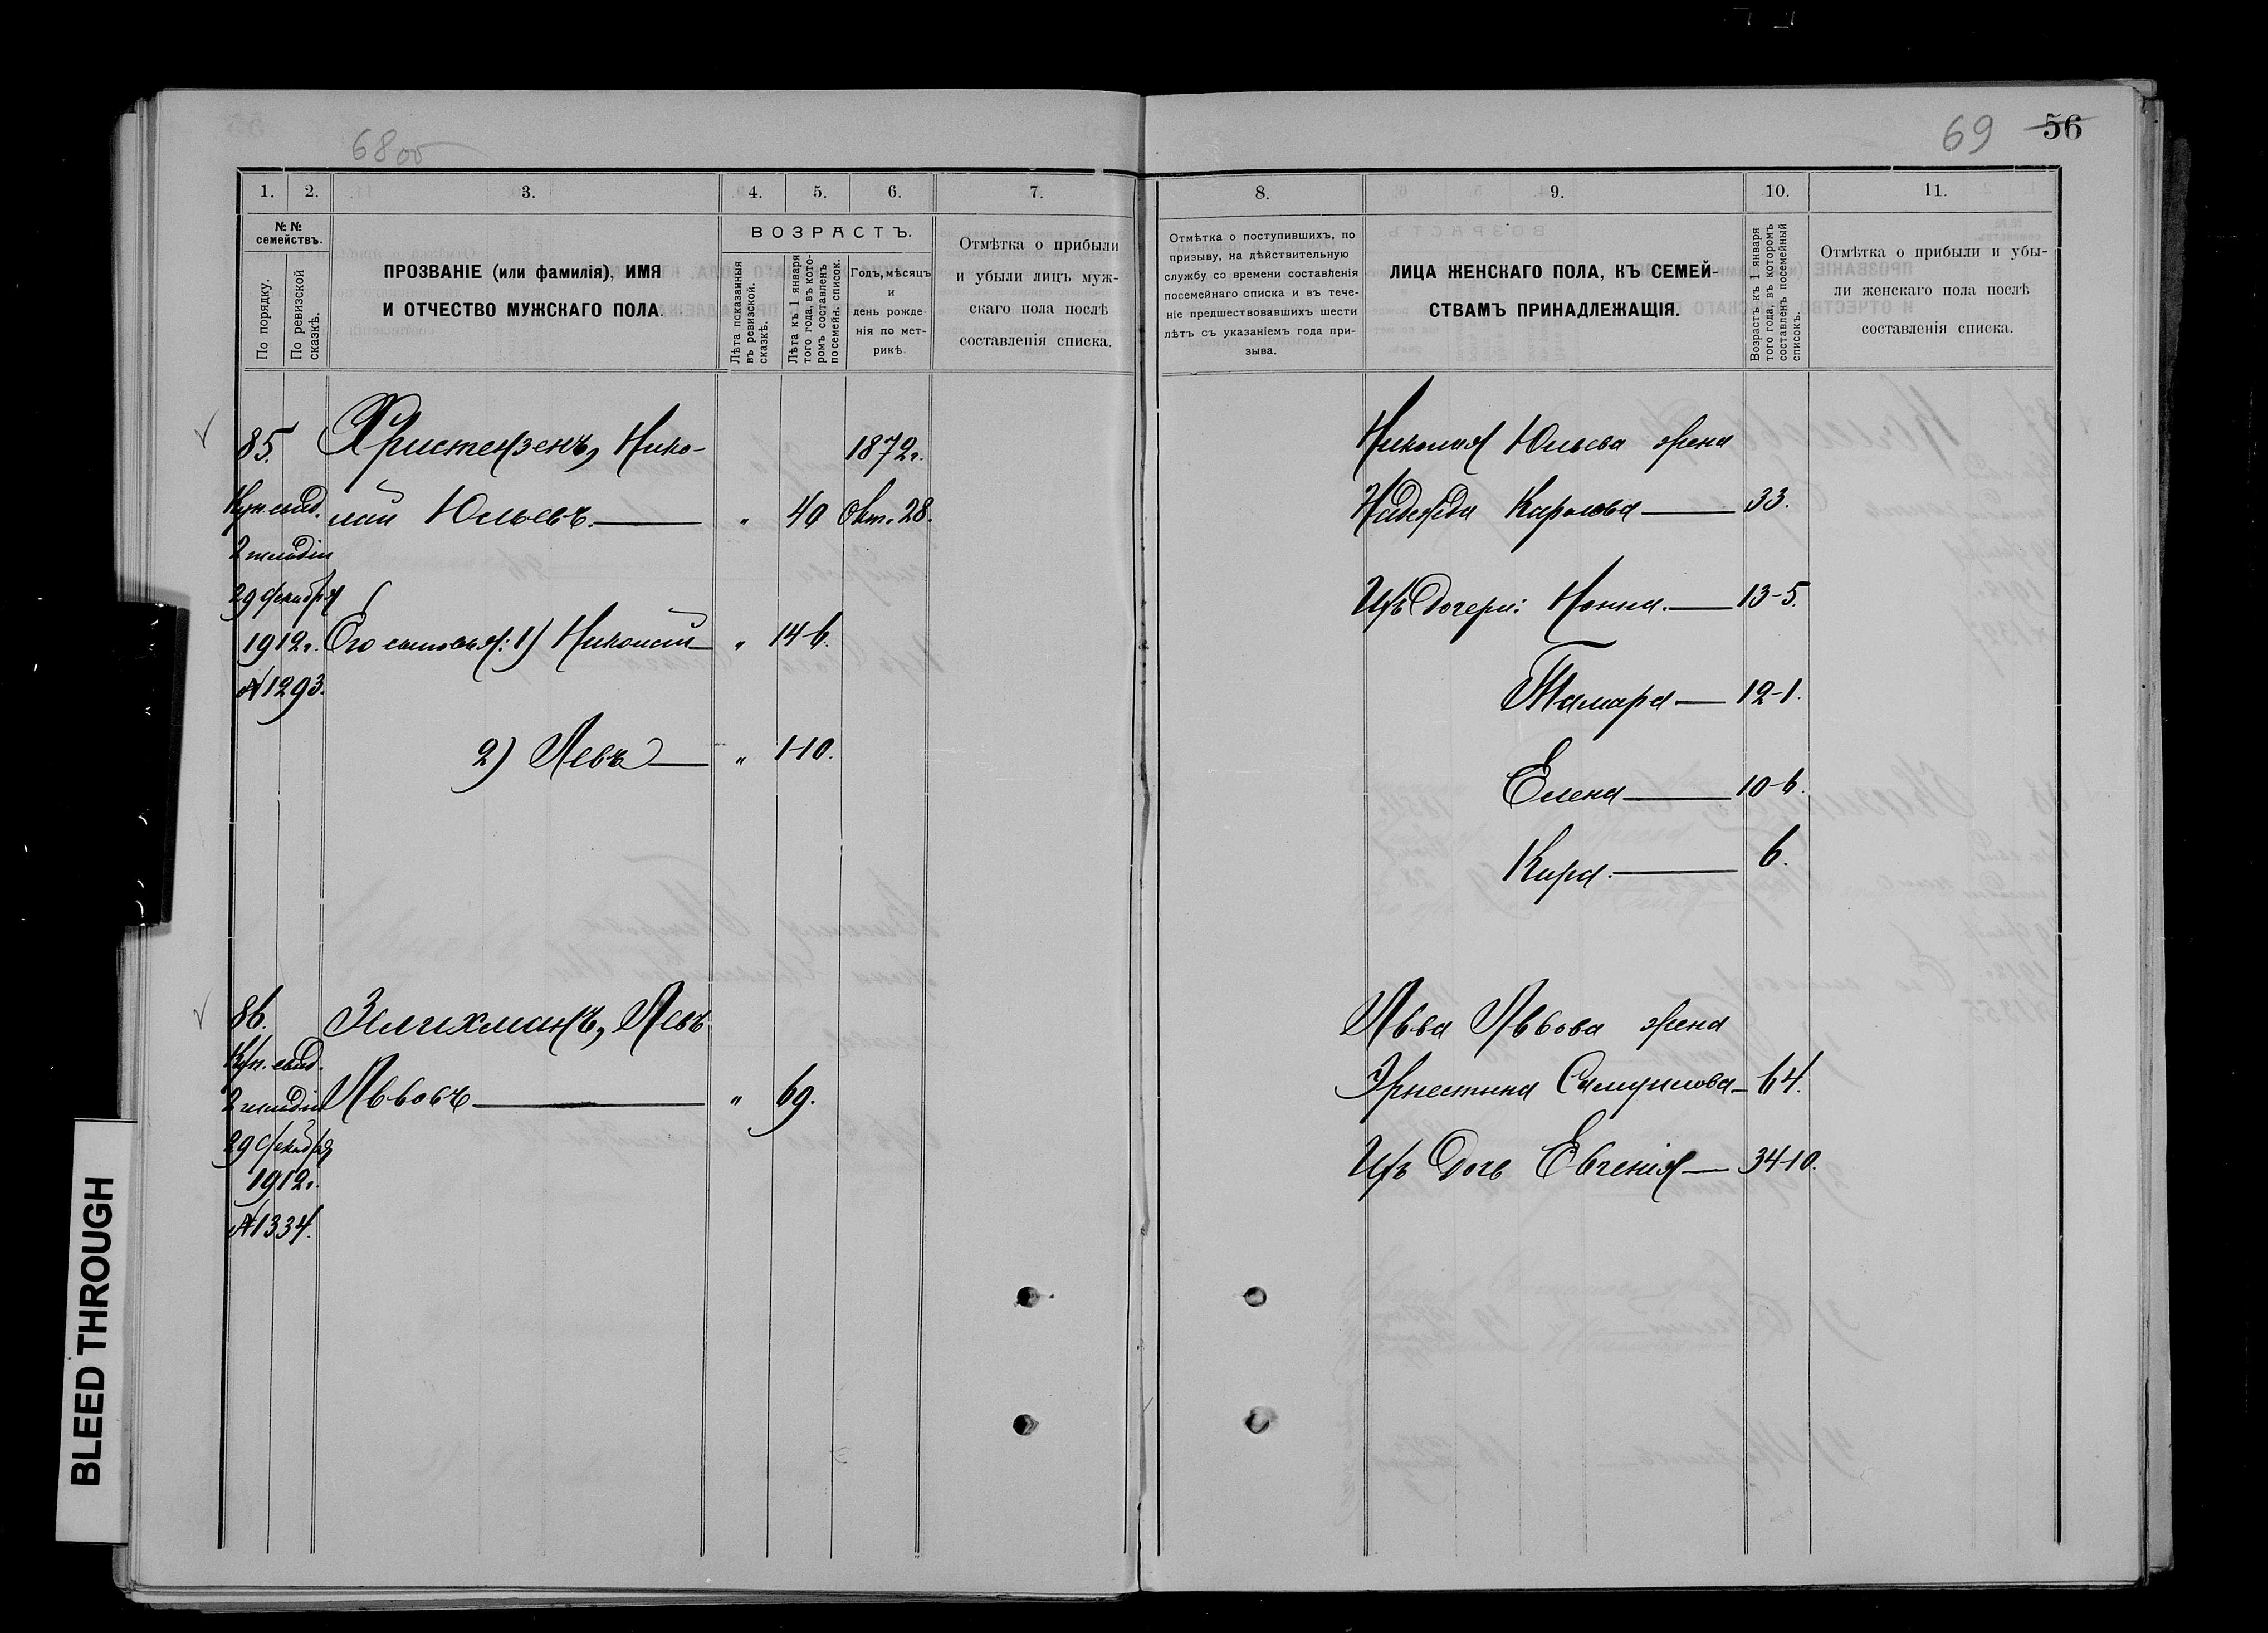 68 об
69 56
1. 2. 3. 4. 5. 6. 7.
№ №
семействъ.
По порядку.
По ревизской
сказкѣ.
ПРОЗВАНІЕ (или фамилія), ИМЯ
И ОТЧЕСТВО МУЖСКАГО ПОЛА.
ВОЗРАСТЪ.
Лѣта показанныя
въ ревизской.
сказкѣ.
Лѣта къ 1 января
того года, въ кото-
ромъ составленъ
посемейн. списокъ.
Годъ, мѣсяцъ
и
день рожде-
нія по мет-
рикѣ.
Отмѣтка о прибыли
и убыли лицъ муж-
скаго пола послѣ
составленія списка.
85. Христензенъ, Нико- 1872г.
Куп. свид. лай Юльевъ. „ 40 Окт. 28.
2 гильдіи
29 декабря
1912г. Его сыновья: 1) Николай „ 14-6.
№ 1293.
2) Левъ „ 1-10.
86. Зелихманъ, Левъ
Куп. свид.
2 гильдіи Львовъ „ 69.
29 декабря
1912г.
№ 1334.
8. 9. 10. 11.
Отмѣтка о поступившихъ, по
призыву, на дѣйствительную
службу со времени составленія
посемейнаго списка и въ тече-
ніе предшествовавшихъ шести
лѣтъ съ указаніемъ года при-
зыва.
ЛИЦА ЖЕНСКАГО ПОЛА, КЪ СЕМЕЙ-
СТВАМЪ ПРИНАДЛЕЖАЩІЯ.
Возрастъ къ 1 января
того года, въ которомъ
составленъ посемейный
списокъ.
Отмѣтка о прибыли и убы-
ли женскаго пола послѣ
составленія списка.
Николая Юльева жена
Надежда Карлова 33.
Ихъ дочери: Нонна. 13-5.
Тамара 12-1.
Елена 10-6.
Кира. 6.
Льва Львова жена
Эрнестина Самуилова 64.
Ихъ дочь Евгенія 34-10.
BLEED THROUGH